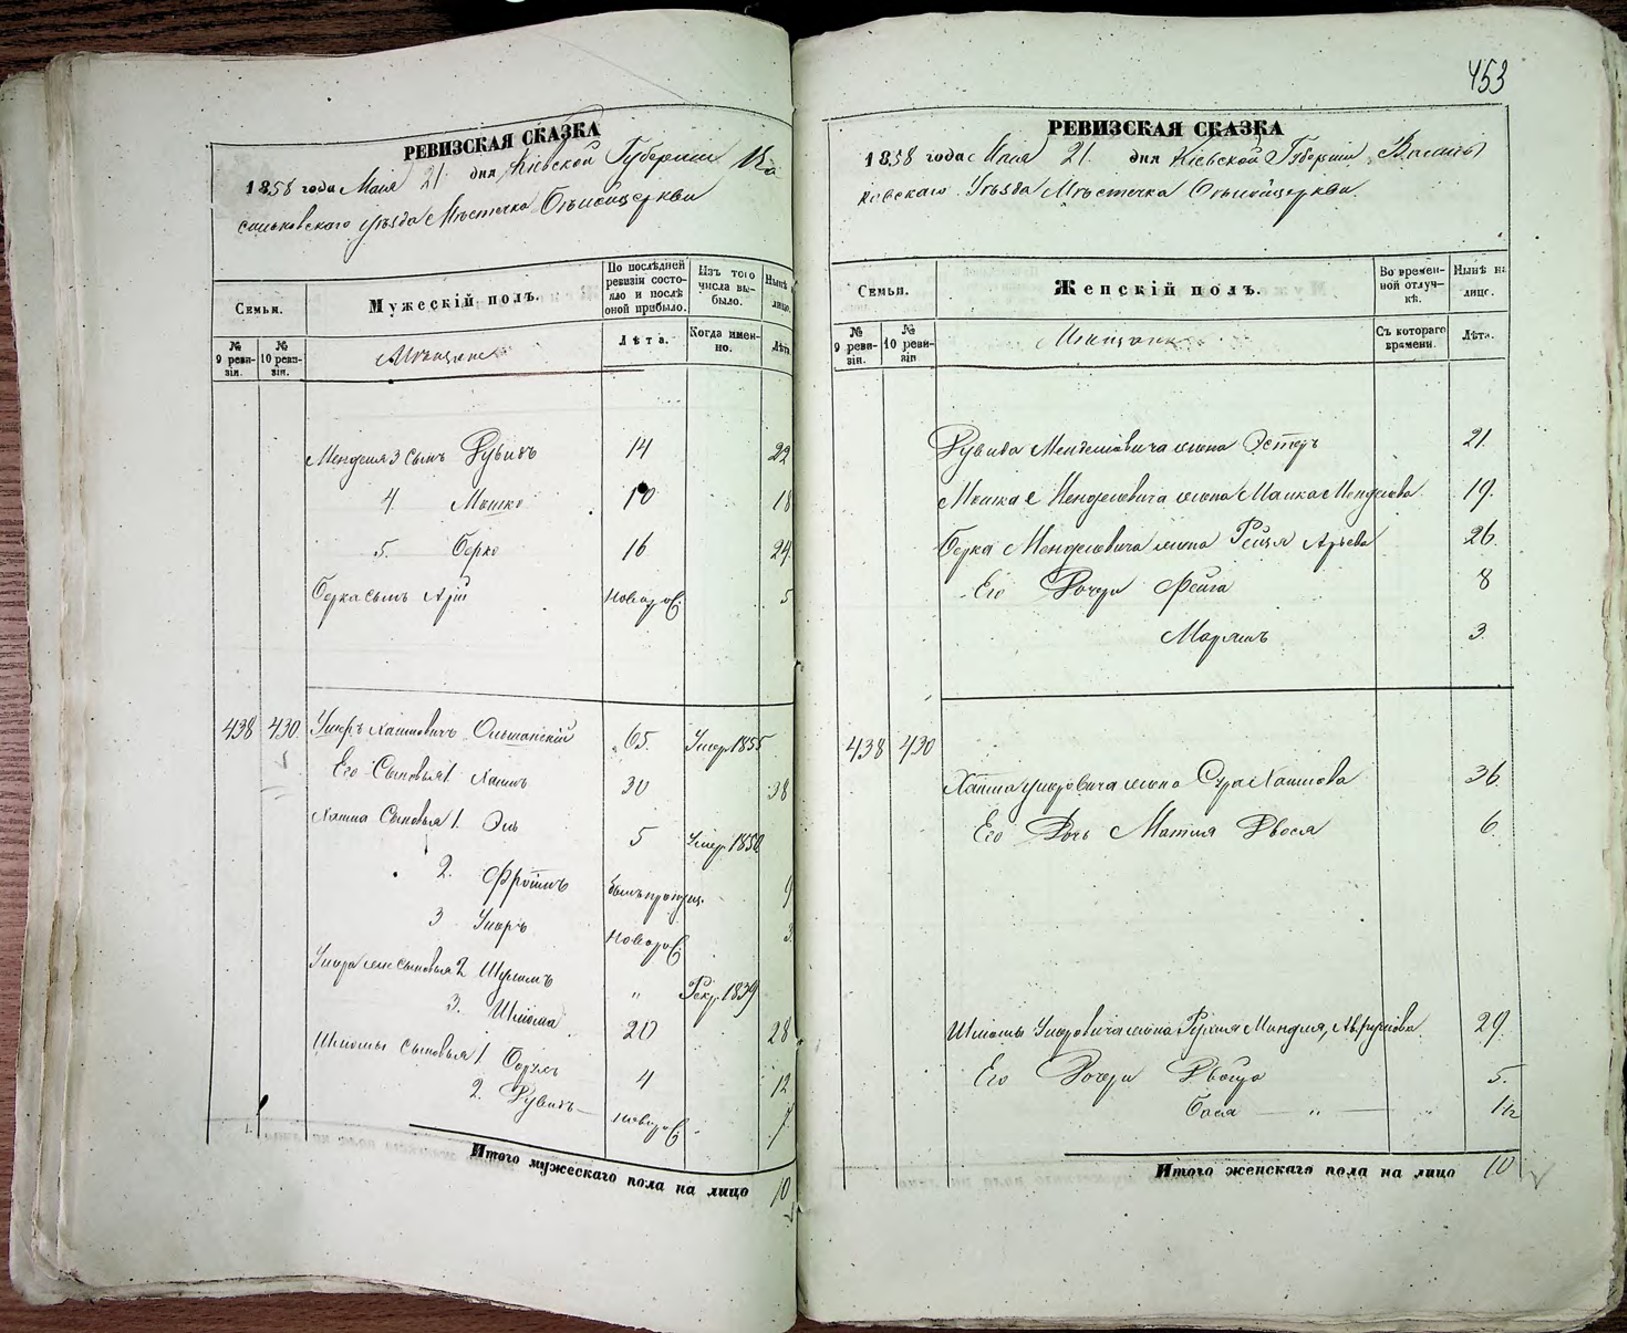 РЕВИЗСКАЯ СКАЗКА
1858 года Мая 21 дня Кіевской Губерніи Ва
сильковскаго уѣзда Мѣстечка Бѣлойцеркви
Семьи.
Мужескій полъ.
По послѣдней ревизіи состояло и послѣ оной прибыло.
Изъ того числа выбыло.
Нынѣ
лицо.
№ 9 ревизіи.
№ 10 ревизіи.
Мѣщане
Лѣта.
Когда именно.
Лѣта
Менделя 3 Сынъ Рувинъ 14 22
4. Мошко 10 18
5. Берко 16 24
Берка Сынъ Арій новорож. 5
438 430 Хаимовичъ Ольшанскій 65. Умер. 1855
Его Сыновья 1 Хаимъ 30 38
Хаима Сыновья 1. Эль 5 Умер. 1850
2. Фроимъ былъ пропущ. 9
3 новорож. 3
сыновья 2 Шулимъ " Рекр. 1839
3. Шліома 20 28
Шліомы Сыновья 1 4 12
2. Рувинъ новорож. 7
Итого мужескаго пола на лицо 10
453
РЕВИЗСКАЯ СКАЗКА
1858 года Мая 21. дня Кіевской Губерніи Василь
ковскаго Уѣзда Мѣстечка Бѣлойцеркви
Семьи.
Женскій полъ.
Во временной отлучкѣ.
Нынѣ на лицо.
№ 9 ревизіи.
№ 10 ревизіи
Мѣщанки
Съ котораго времени.
Лѣта.
Рувина Менделіовича жена Эстеръ 21.
Мошка Менделіовича жена Малка Менделіова 19.
Берка Менделіовича жена Рейзя Арьева 26.
Его Дочери Фейга 8
Маріямъ 3.
438 430
Хаима жена Сура Хаимова 36.
Его Дочь Матля Двося 6.
Шліомы жена Миндля, 29.
Его Дочери Двойра 5.
Бася " " 1/2
Итого женскаго пола на лицо 10